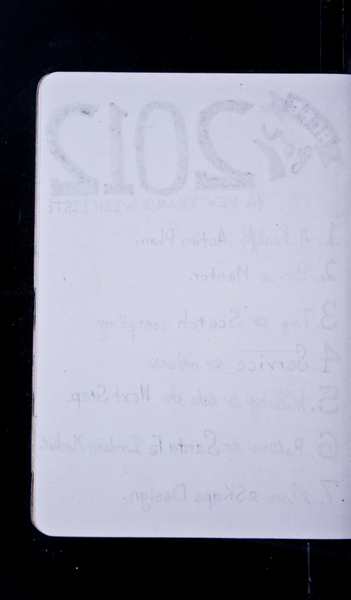 2012
(A NEW YEAR'S WISH LIST)
1. A Action Plan.
2. Be a Mentor.
3 Try to Scetch everyday
4. Service to others
5. Willing to take the Next Step.
6. Return to Santa Fe Indian Market.
7. Draw eSkape Design.